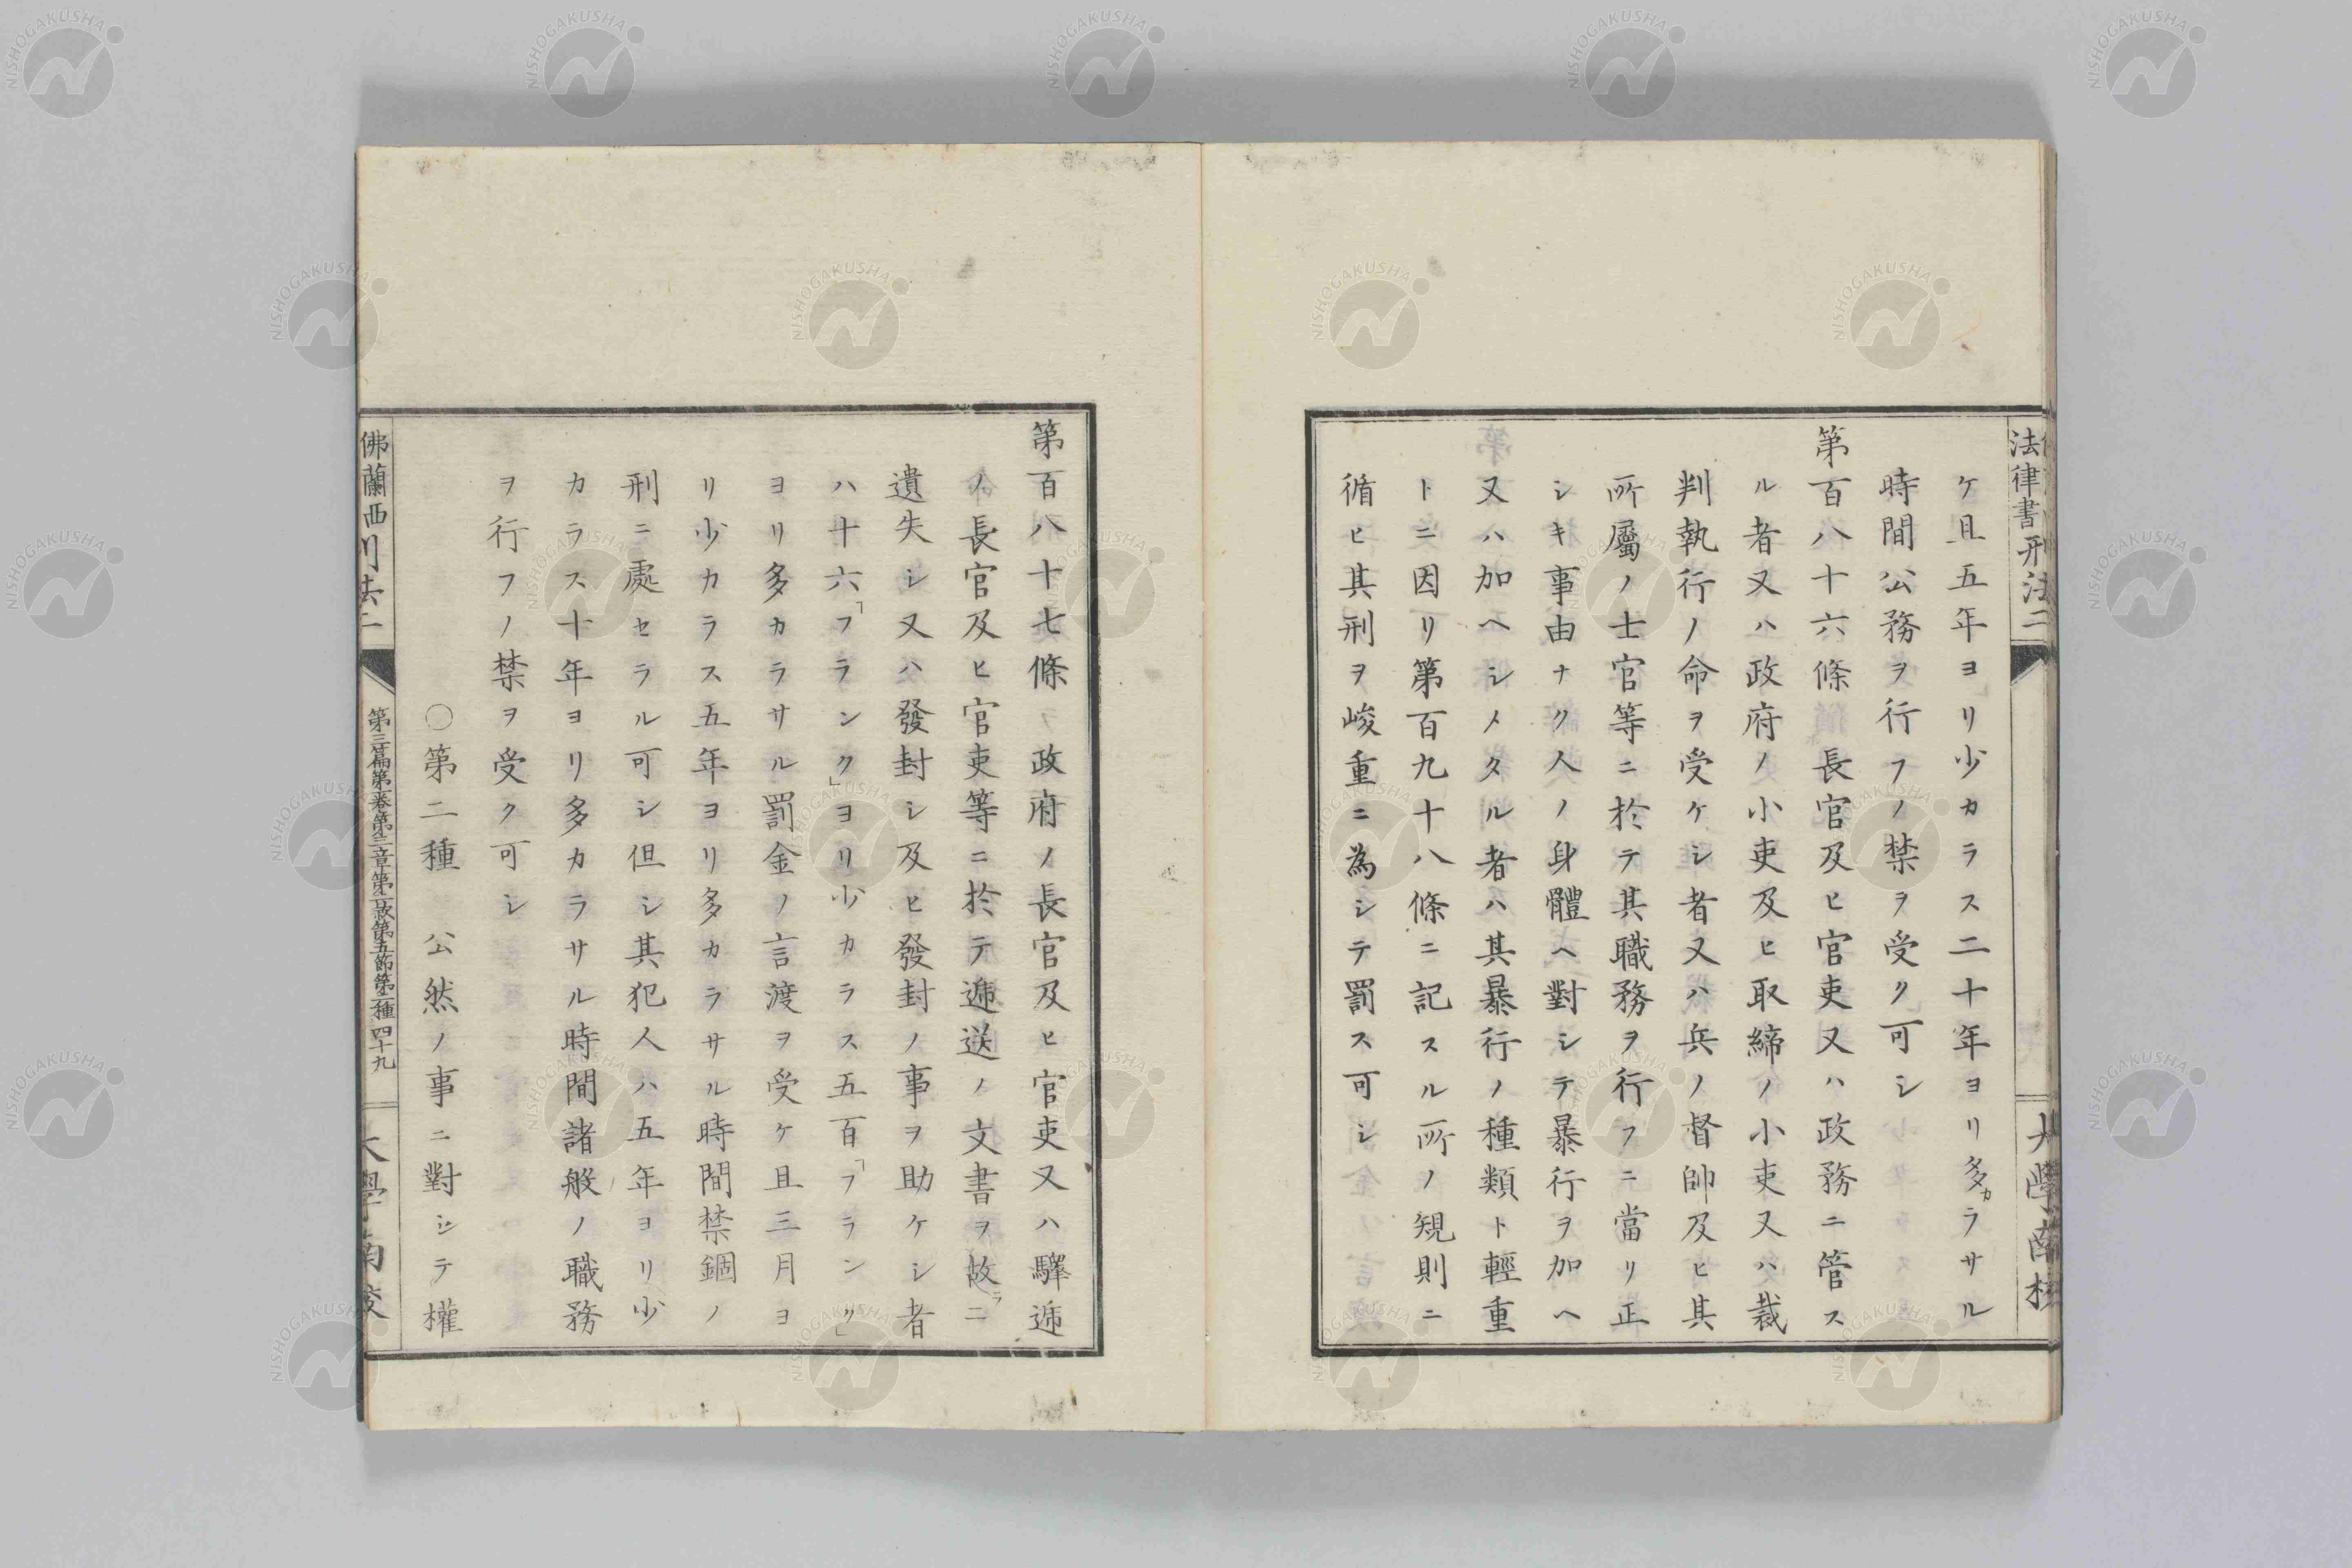 法律書刑法二
大學南校
ケ且五年ヨリ少カラス二十年ヨリ多カラサル
時間公務ヲ行フノ禁ヲ受ク可シ
第百八十六條　長官及ヒ官吏又ハ政務ニ管ス
ル者又ハ政府ノ小吏及ヒ取締ノ小吏又ハ裁
判執行ノ命ヲ受ケシ者又ハ兵ノ督帥及ヒ其
所屬ノ士官等ニ於テ其職務ヲ行フニ當リ正
シキ事由ナク人ノ身體ヘ對シテ暴行ヲ加ヘ
又ハ加ヘシメタル者ハ其暴行ノ種類ト輕重
トニ因リ第百九十八條ニ記スル所ノ規則ニ
循ヒ其刑ヲ峻重ニ為シテ罰ス可シ
第百八十七條　政府ノ長官及ヒ官吏又ハ驛遞
ノ長官及ヒ官吏等ニ於テ遞送ノ文書ヲ故ラニ
遺失シ又ハ發封シ及ヒ發封ノ事ヲ助ケシ者
ハ十六「フランク」ヨリ少カラス五百「フランク」
ヨリ多カラサル罰金ノ言渡ヲ受ケ且三月ヨ
リ少カラス五年ヨリ多カラサル時間禁錮ノ
刑ニ處セラル可シ但シ其犯人ハ五年ヨリ少
カラス十年ヨリ多カラサル時間諸般ノ職務
ヲ行フノ禁ヲ受ク可シ
〇第二種　公然ノ事ニ對シテ權
佛蘭西刑法二
第三篇第一卷第三章第二款第五節第二種 四十九
大學南校
NISHOGAKUSHA